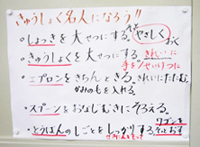 きゅうしょく名人になろう!!
・しょっきを大せつにする。そっと やさしく おく
・きゅうしょくを大せつにする。きれいに
手をせいけつに
・エプロンをきちんときる。きれいにたたむ。
かみのもを入れる
・スプーンをおなじむきにそろえる。
・とうばんのしごとをしっかりする。ワゴンを